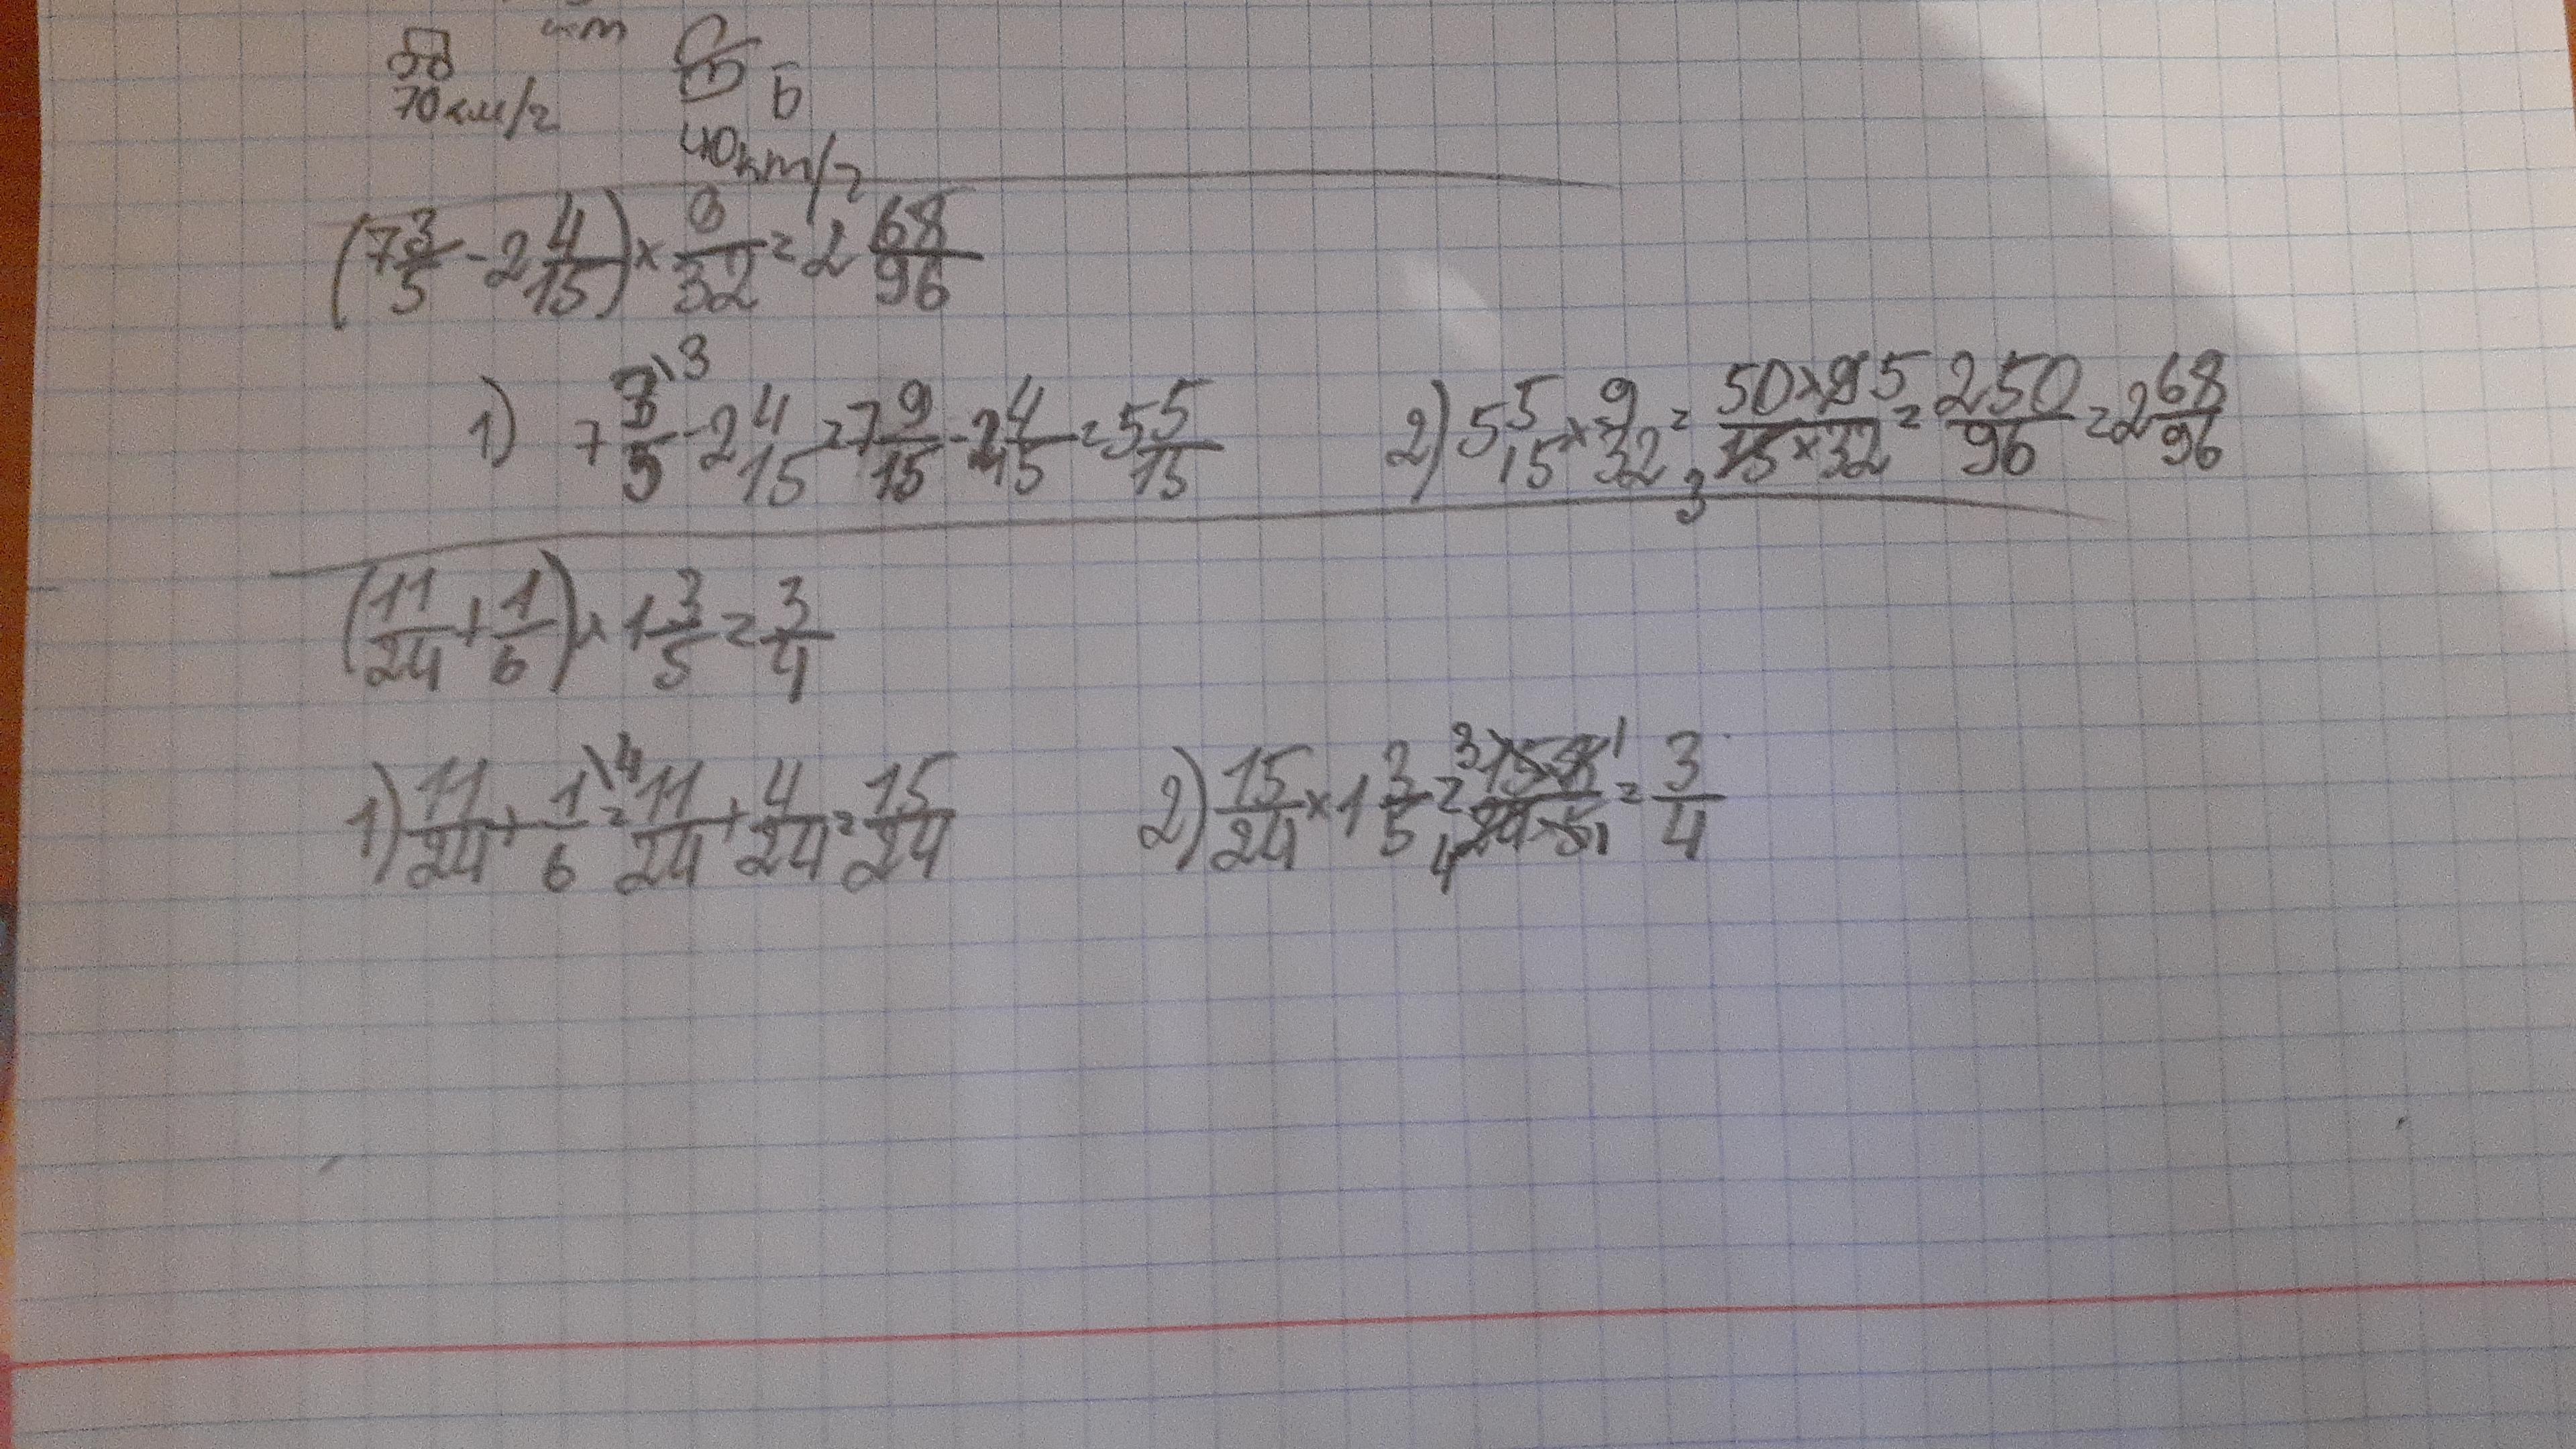 70км/г Б
40км/г
(7 3/5 - 2 4/15) × 9/32 = 2 68/96
1) 7 3/5\3 - 2 4/15 = 7 9/15 - 2 4/15 = 5 5/15 2) 5 5/15 × 9/32 = 50×95/15×32 3 = 250/96 = 2 68/96
(11/24 + 1/6) × 1 3/5 = 3/4
1) 11/24 + 1/6\4 = 11/24 + 4/24 = 15/24 2) 15/24 × 1 3/5 = 3 15·8 1/4 24·5 1 = 3/4